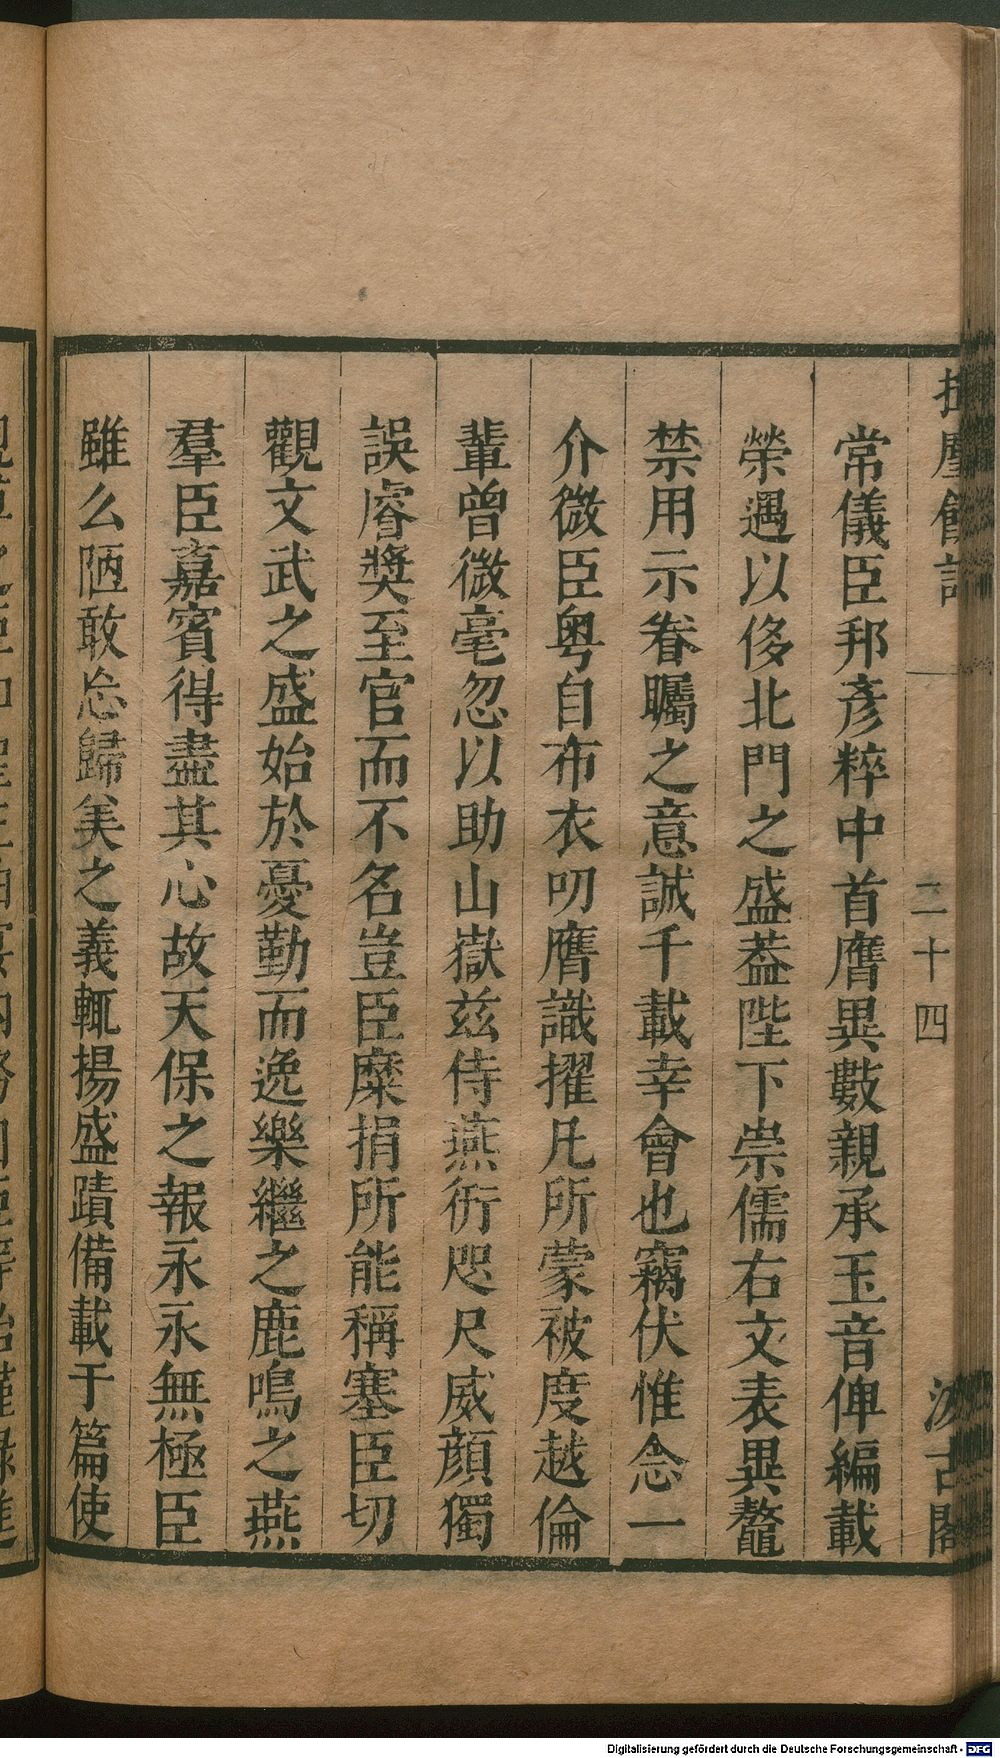 揮麈餘話 一 二十四 汲古閣
常儀臣邦彥粹中首膺異數親承玉音俾編載
榮遇以侈北門之盛葢陛下崇儒右文表異鼇
禁用示眷矚之意誠千載幸會也竊伏惟念一
介微臣粤自布衣叨膺識擢凡所蒙被度越倫
輩曾微毫忽以助山嶽兹侍燕衎咫尺威顔獨
誤睿獎至官而不名豈臣糜捐所能稱塞臣切
觀文武之盛始於憂勤而逸樂繼之鹿鳴之燕
羣臣嘉賓得盡其心故天保之報永永無極臣
雖么陋敢忘歸美之義輒揚盛蹟備載于篇使
Digitalisierung gefördert durch die Deutsche Forschungsgemeinschaft - DFG